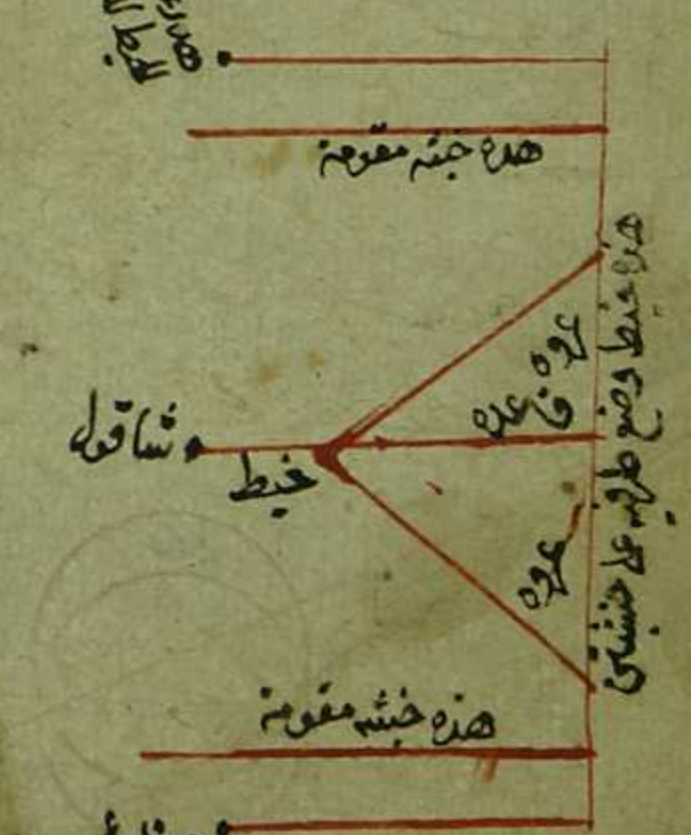 هذه خشبة مقومة
هذا خيط وضع طرفيه على خشبتين
عروة
قاعدة
شاقول
خيط
عروة
هذه خشبة مقومة